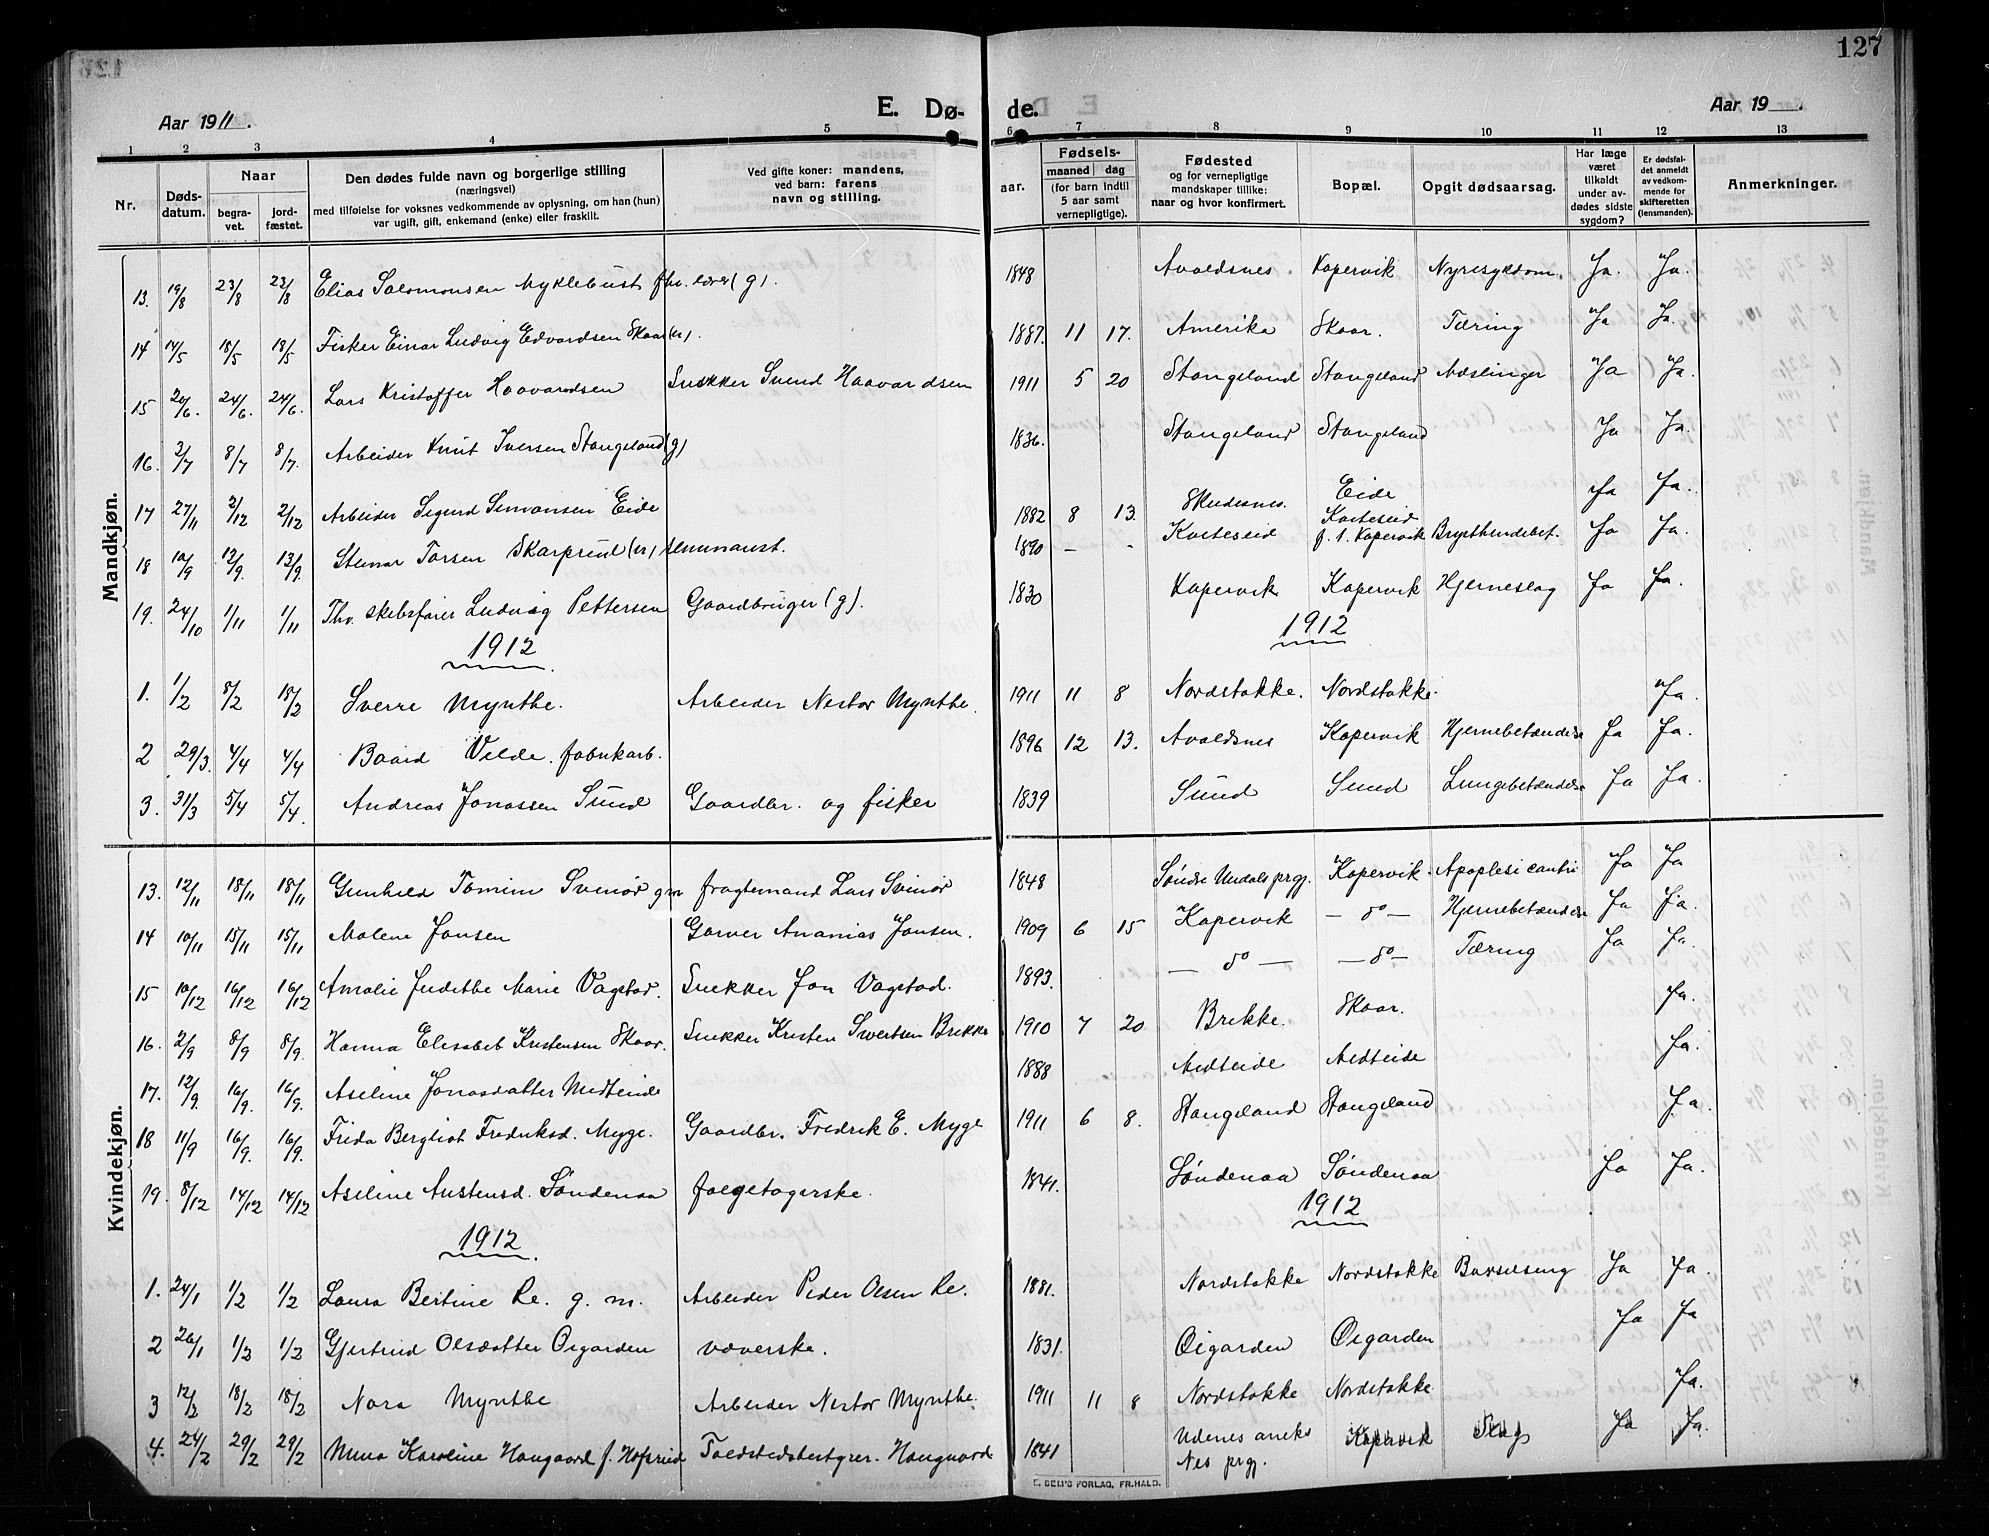 127
E. Dø- de.
Aar 1911.
Aar 19
1 2 3 4 5 6 7 8 9 10 11 12 13
Nr.
Døds-datum.
Naar
begra-vet.
jord-fæstet.
Den dødes fulde navn og borgerlige stilling
(næringsvei)
med tilføielse for voksnes vedkommende av oplysning, om han (hun)
var ugift, gift, enkemand (enke) eller fraskilt.
Ved gifte koner: mandens,
ved barn: farens
navn og stilling.
Fødsels-
aar.
maaned dag
(for barn indtil
5 aar samt
vernepligtige).
Fødested
og for vernepligtige
mandskaper tillike:
naar og hvor konfirmert.
Bopæl.
Opgit dødsaarsag.
Har læge
været
tilkaldt
under av-
dødes sidste
sygdom?
Er dødsfal-
det anmeldt
av vedkom-
mende for
skifteretten
(lensmanden).
Anmerkninger.
Mandkjøn.
13. 19/8 23/8 23/8 Elias Salomonsen Myklebust fhv. lærer (g). 1848 Avaldsnes Kopervik Nyresykdom. Ja. Ja.
14 14/5 18/5 18/5 Fisker Einar Ludvig Edvardsen Skaar (u). 1887. 11 17. Amerika Skaar. Tæring Ja Ja.
15 20/6. 24/6. 24/6. Lars Kristoffer Haavardsen Snekker Svend Haavardsen 1911 5 20 Stangeland Stangeland Næslinger Ja Ja.
16. 2/7 8/7 8/7. Arbeider Knut Iversen Stangeland (g) 1836. Stangeland Stangeland Ja Ja.
17 27/11 2/12 2/12 Arbeider Sigurd Simonsen Eide 1882 8 13. Skudesnes. Eide Ja Ja.
18 10/9 13/9. 13/9. Steinar Tarsen Skarprud (u) Seminarist. 1890 — - Kviteseid Kviteseid f. t. Kopervik Brysthindebet. Ja Ja.
19. 24/10 1/11 1/11 Fhv. skibsfører Ludvig Pettersen Gaardbruger (g). 1830 Kopervik Kopervik Hjerneslag Ja Ja.
1912 1912
1. 1/2 8/2 18/2 Sverre Mynthe. Arbeider Nestor Mynthe. 1911 11 8 Nordstokke. Nordstokke. Ja.
2 29/3. 4/4 4/4 Baard Velde. fabrikarb. 1896 12 13. Avaldsnes Kopervik Hjernebetændelse Ja Ja.
3. 31/3 5/4 5/4. Andreas Jonassen Sund Gaardbr. og fisker 1839 Sund Sund Lungebetændelse Ja Ja.
Kvindekjøn.
13. 12/11 18/11 18/11 Gunhild Tomine Svinør gm fragtemand Lars Svinør 1848 Søndre Undals prgj. Kopervik. Apoplesi cantri Ja Ja
14 10/11 15/11 15/11 Malene Jansen Garver Ananias Jansen. 1909 6 15 Kopervik — do — Hjernebetændelse Ja Ja.
15 10/12 16/12 16/12 Amalie Judithe Marie Vagstad. Snekker Jon Vagstad. 1893. — do — — do — Tæring Ja Ja.
16. 2/9 8/9 8/9. Hanna Elisabet Kristensen Skaar. Snekker Kristen Swertsen Brekke 1910 7 20 Brekke. Skaar. Ja.
17. 12/9. 16/9. 16/9. Aseline Jonasdatter Midteide 1888 Midteide Midteide Ja.
18 11/9 16/9. 16/9. Frida Bergliot Fredriksd. Myge. Gaardbr. Fredrik E. Myge 1911 6 8. Stangeland Stangeland Ja.
19. 8/12 14/12 14/12 Aseline Austensd. Søndenaa føgetagerske. 1841. Søndenaa Søndenaa Ja Ja.
1912. 1912
1. 24/1 1/2 1/2 Laura Bertine Re. g. m. Arbeider Peder Olsen Re. 1881. Nordstokke Nordstokke Barselseng Ja Ja.
2 26/1 1/2 1/2 Gjertrud Olsdatter Øigarden væverske. 1831. Øigarden Øigarden Ja Ja
3 12/2 18/2 18/2 Nora Mynthe Arbeider Nestor Mynthe. 1911 11 8 Nordstokke Nordstokke Ja.
4. 24/2 29/2 29/2 Mina Karoline Haugaard f. Hofsrud Toldstedsbestyrer. Haugaard 1841 Udenes aneks Nes prgj. Kopervik Slag Ja Ja.
E. SEM'S FORLAG, FR.HALD.